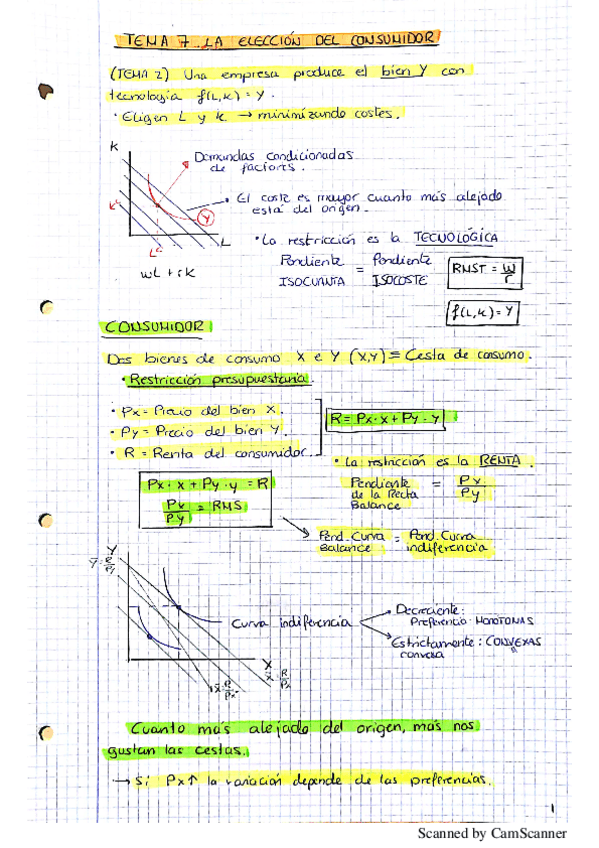 TEMA 7 LA ELECCIÓN DEL CONSUMIDOR
(TEMA 2) Una empresa produce el bien Y con
tecnología f(L,K) = Y.
· Eligen L y K → minimizando costes.
K
Demandas condicionadas
de factores.
· El coste es mayor cuanto más alejado
está del origen.
Y
L
wL + rK
· La restricción es la TECNOLÓGICA
Pendiente ISOCUANTA = Pendiente ISOCOSTE
RMST = w/r
f(L,K) = Y
CONSUMIDOR
Dos bienes de consumo X e Y (X,Y) ≡ Cesta de consumo.
· Restricción presupuestaria.
· Px = Precio del bien X.
· Py = Precio del bien Y.
· R = Renta del consumidor.
R = Px · x + Py · y
· La restricción es la RENTA.
Pendiente de la Recta Balance = Px/Py
Px · x + Py · y = R
Px/Py = RMS
Pend. Curva Balance = Pend. Curva indiferencia
Y
Curva indiferencia
Decreciente:
Preferencia: MONOTONAS
Estrictamente convexa : CONVEXAS
X
Cuanto más alejado del origen, más nos
gustan las cestas.
→ Si Px↑ la variación depende de las preferencias.
1
Scanned by CamScanner